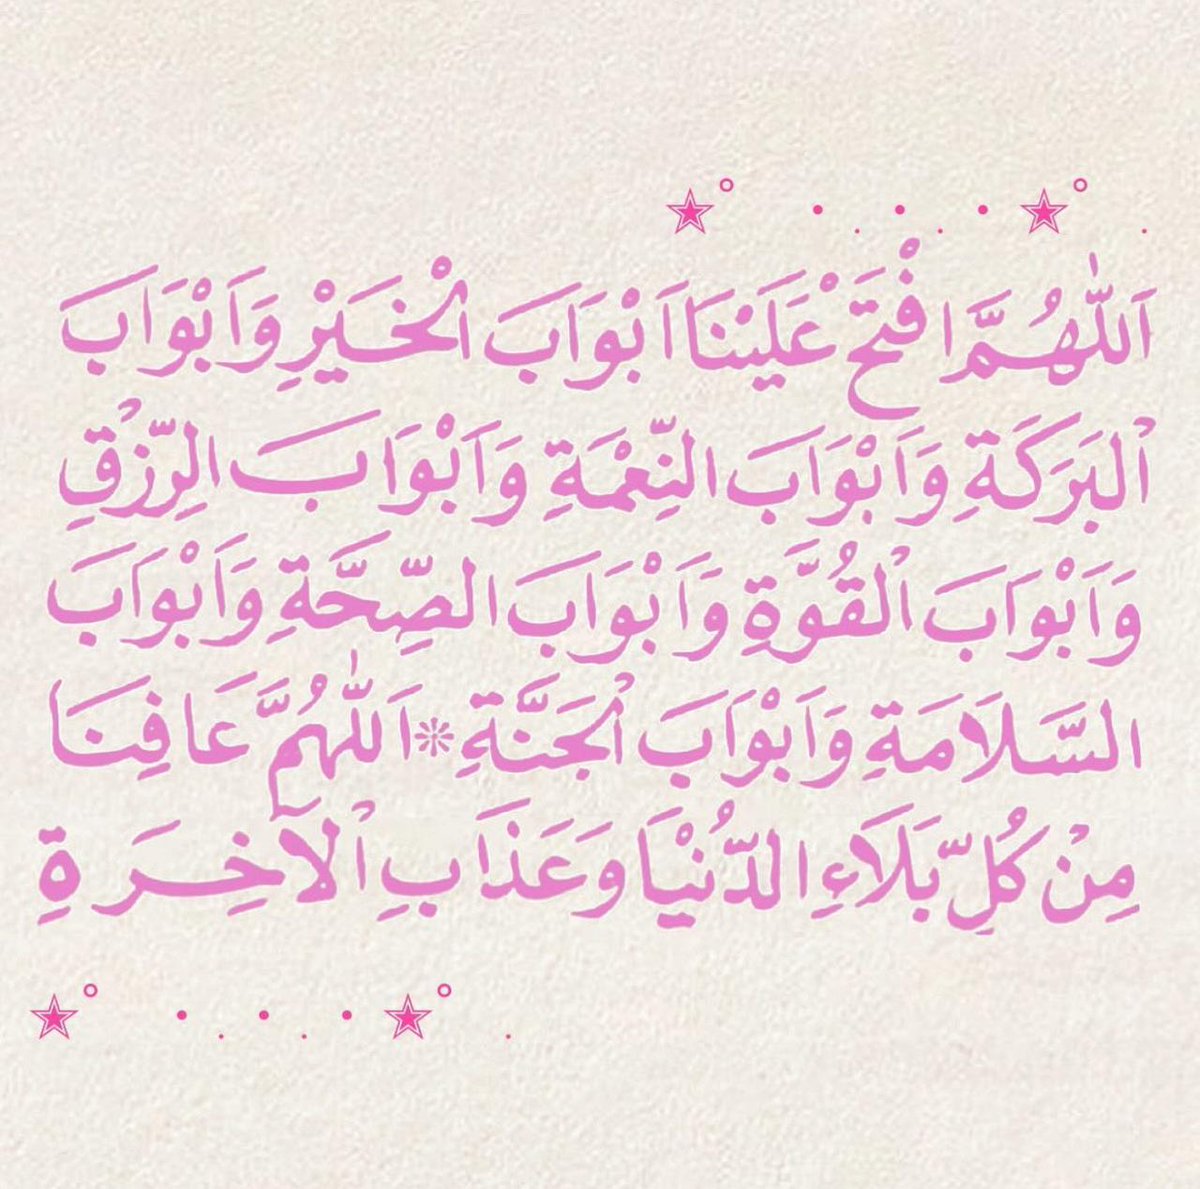 اَللّٰهُمَّ افْتَحْ عَلَيْنَا اَبْوَابَ الْخَيْرِ وَاَبْوَابَ
الْبَرَكَةِ وَاَبْوَابَ النِّعْمَةِ وَاَبْوَابَ الرِّزْقِ
وَاَبْوَابَ الْقُوَّةِ وَاَبْوَابَ الصِّحَّةِ وَاَبْوَابَ
السَّلَامَةِ وَاَبْوَابَ الْجَنَّةِ ❊ اَللّٰهُمَّ عَافِنَا
مِنْ كُلِّ بَلَاءِ الدُّنْيَا وَعَذَابِ الْاٰخِرَةِ